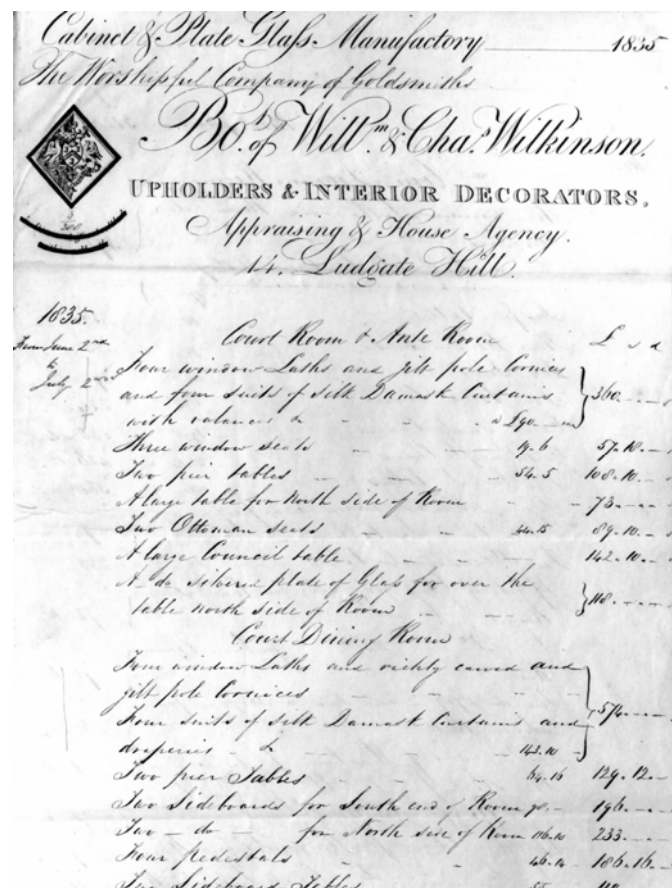 Cabinet & Plate Glass Manufactory 1835
The Worshipful Company of Goldsmiths
Bot. of Willm. & Chas. Wilkinson.
UPHOLDERS & INTERIOR DECORATORS,
Appraising & House Agency.
14. Ludgate Hill.
1835.
From June 2nd
to
July 2nd
Court Room & Ante Room £ s d
Four window Laths and gilt pole Cornices
and four suits of silk Damask Curtains
with valances & a £90 360
Three window seats 19.6 57.18
Two pier tables 54.5 108.10
A large table for North side of Room 73
Two Ottoman seats 44.15 89.10
A large Council table 142.10
A do silvered plate of Glass for over the
table north side of Room 118
Court Dining Room
Four window Laths and richly carved and
gilt pole Cornices
Four suits of silk Damask Curtains and 574
draperies & 143.10
Two pier Tables 64.16 129.12
Two Sideboards for South end of Room 98 196
Two do for North side of Room 116.10 233
Four pedestals 46.14 186.16
Two Sideboard Tables 55 110